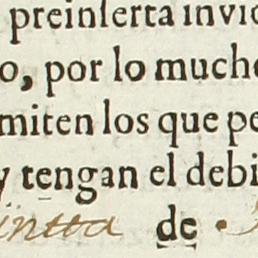 preinserta invio
o, por lo mucho
miten los que pe
y tengan el debi
de